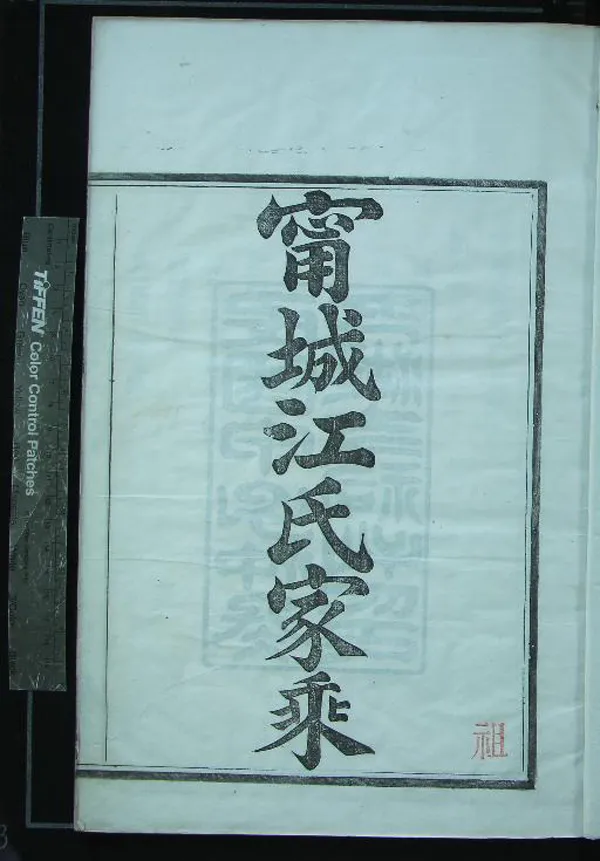 甯城江氏家乘
祖
TIFFEN Color Control Patches